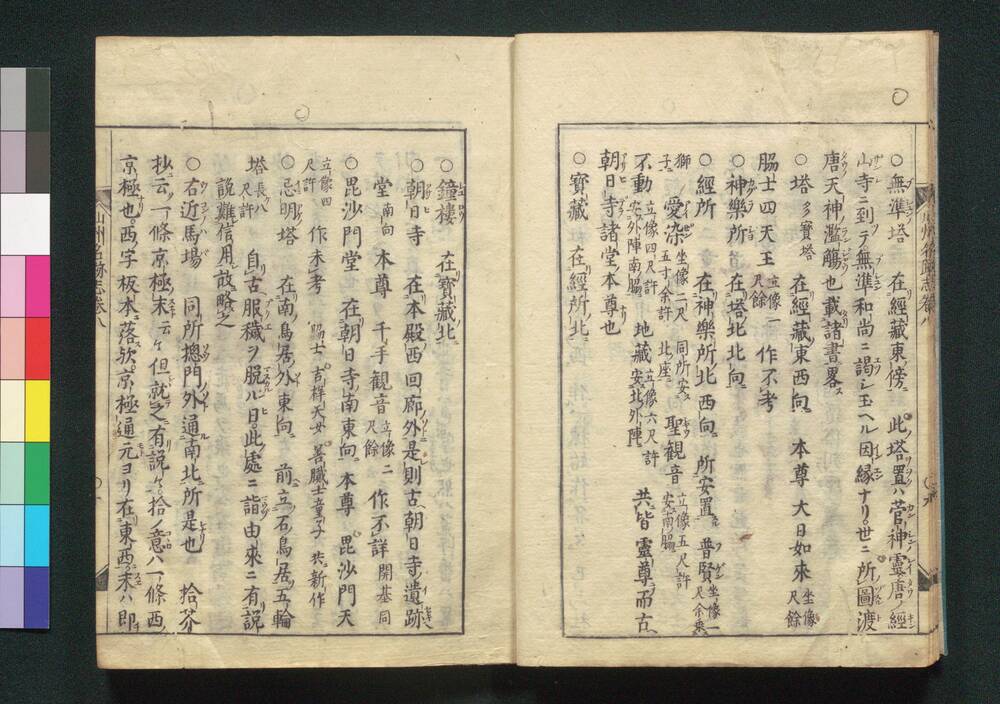 ○無準塔 在經藏東傍 此塔置ハ菅神靈唐ノ經
山寺ニ到テ無準和尚ニ謁シ玉ヘル因縁ナリ世ニ所圖渡
唐天神濫觴也載諸書畧
○塔 多寶塔 在經藏東西向 本尊大日如來 坐像尺餘
脇士四天王 立像一尺餘 作不考
○神樂所 在塔北北向
○經所 在神樂所北西向 所安置 普賢 坐像一尺余乗
獅子 愛染 坐像二尺五寸余許 同所安此座 聖觀音 立像五尺許安南脇
不動 立像四尺許安外陣南脇 地藏 立像六尺許安北外陣 共皆靈尊而古
朝日寺諸堂本尊也
○寳藏 在經所北
○鐘樓 在寳藏北
○朝日寺 在本殿西回廊外是則古朝日寺遺跡
堂 南向 本尊 千手観音 立像二尺餘 作不詳 開基同
○毘沙門堂 在朝日寺南東向 本尊 毘沙門天
立像四尺許 作未考 脇士 吉祥天女 善膩士童子 共新作
○忌明塔 在南鳥居外東向 前立石鳥居五輪
塔 長八尺許 自古服穢ヲ脱ル日此處ニ詣由來ニ有説
説難信用故略之
○右近馬場 同所摠門外通南北所是也 拾芥
抄云一條京極末云々但就之有説々拾ノ意ハ一條西
京極也西ノ字板本落欤京極通元ヨリ在東西末ハ即
山州名跡志卷八